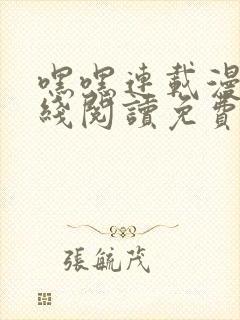 嘿嘿連載漫
綫閱讀免費
張毓茂